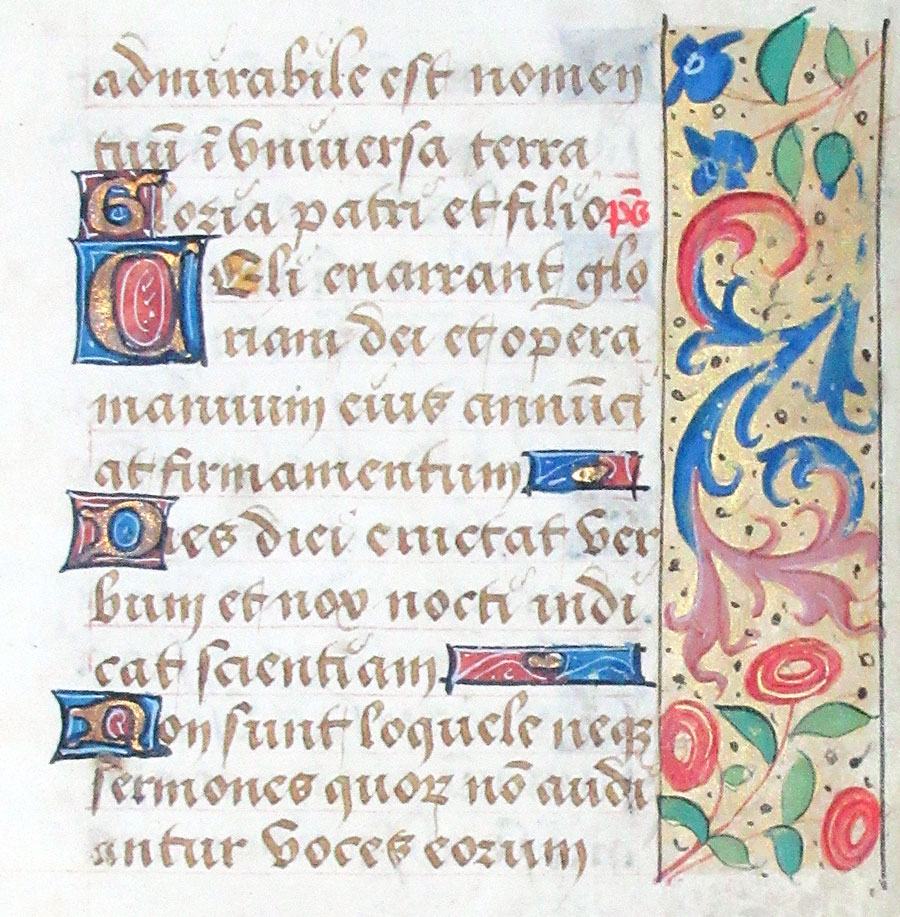 admirabile est nomen
tuū ī vniuersa terra
Gloria patri et filio ps̄
CEli enarrant glo
riam dei et opera
manuum eius annūci
at firmamentum
Dies diei eructat ver
bum et nox nocti indi
cat scientiam
Non sunt loquele neqꝫ
sermones quoꝝ nō audi
antur voces eorum